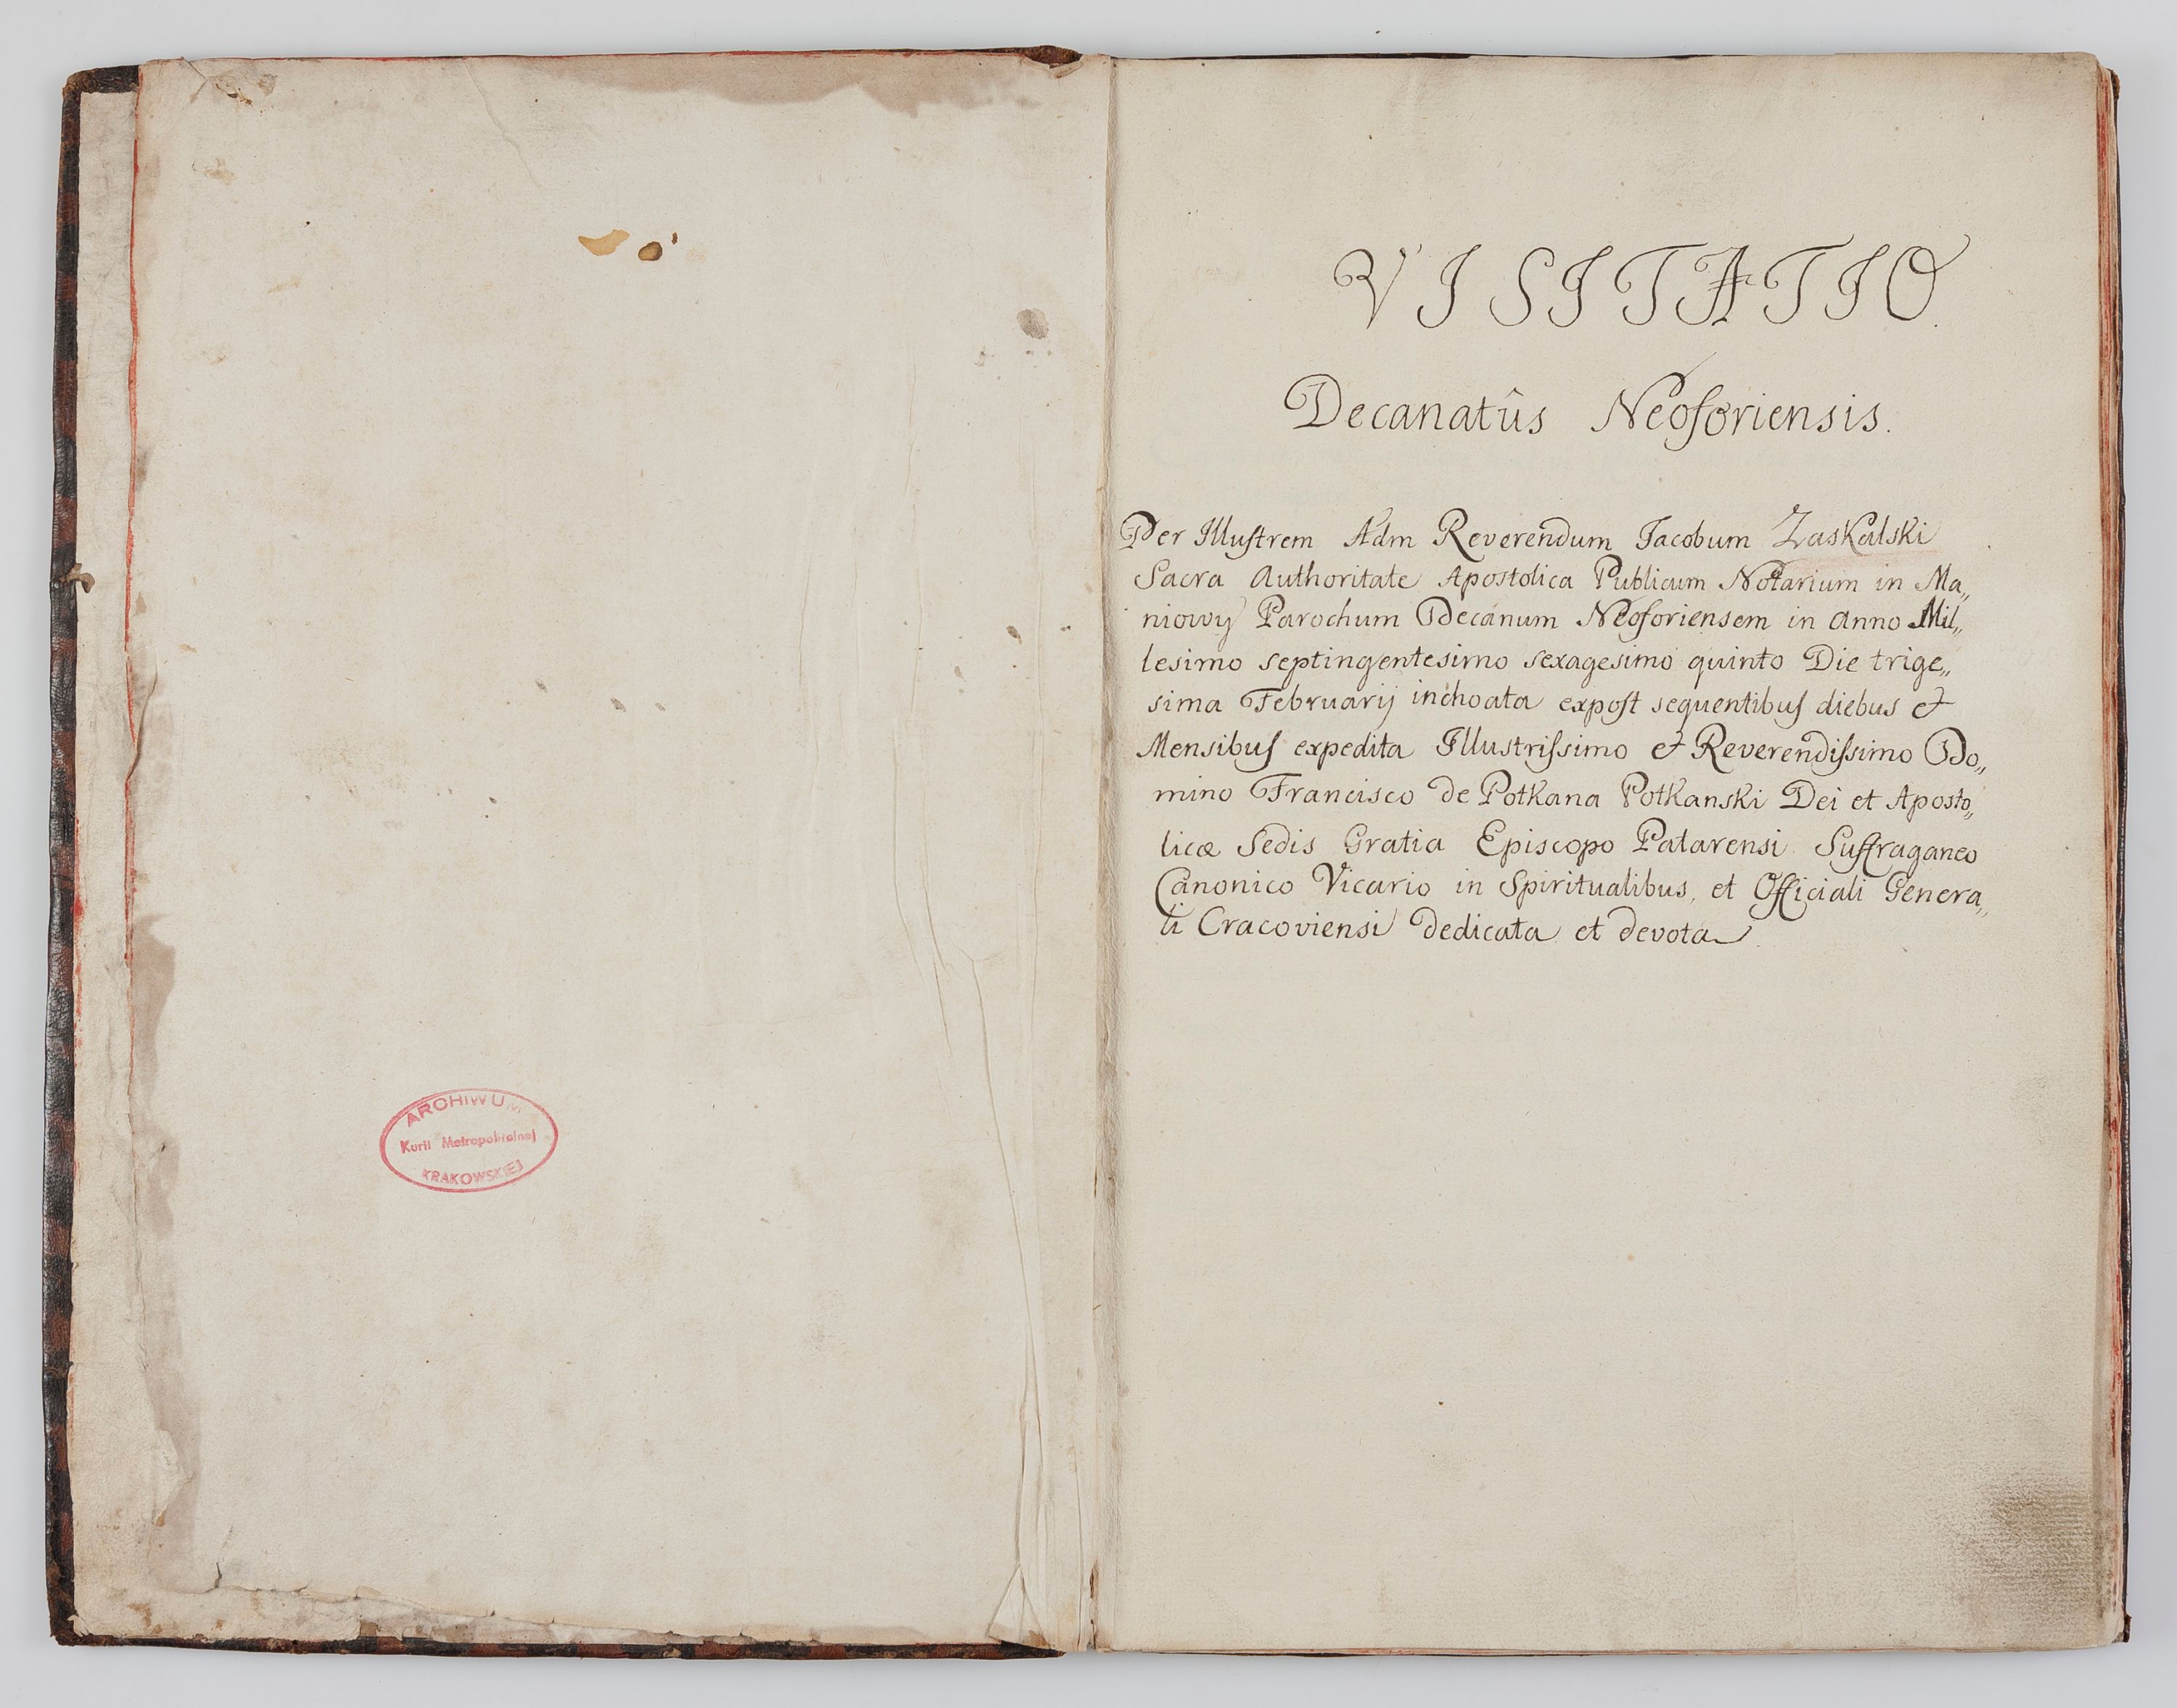 ARCHIWUM
Kurii Metropolitalnej
KRAKOWSKIEJ
VISITATIO
Decanatûs Neoforiensis.
Per Illustrem Adm Reverendum Jacobum Zaskalski
Sacra Authoritate Apostolica Publicum Notarium in Ma„
niowy Parochum Decanum Neoforiensem in Anno Mil„
lesimo septingentesimo sexagesimo quinto Die trige„
sima Februarij inchoata expost sequentibus diebus et
Mensibus expedita Illustrissimo et Reverendissimo Do„
mino Francisco de Potkana Potkanski Dei et Aposto„
licæ Sedis Gratia Episcopo Patarensi Suffraganeo
Canonico Vicario in Spiritualibus, et Officiali Genera„
li Cracoviensi dedicata et devota